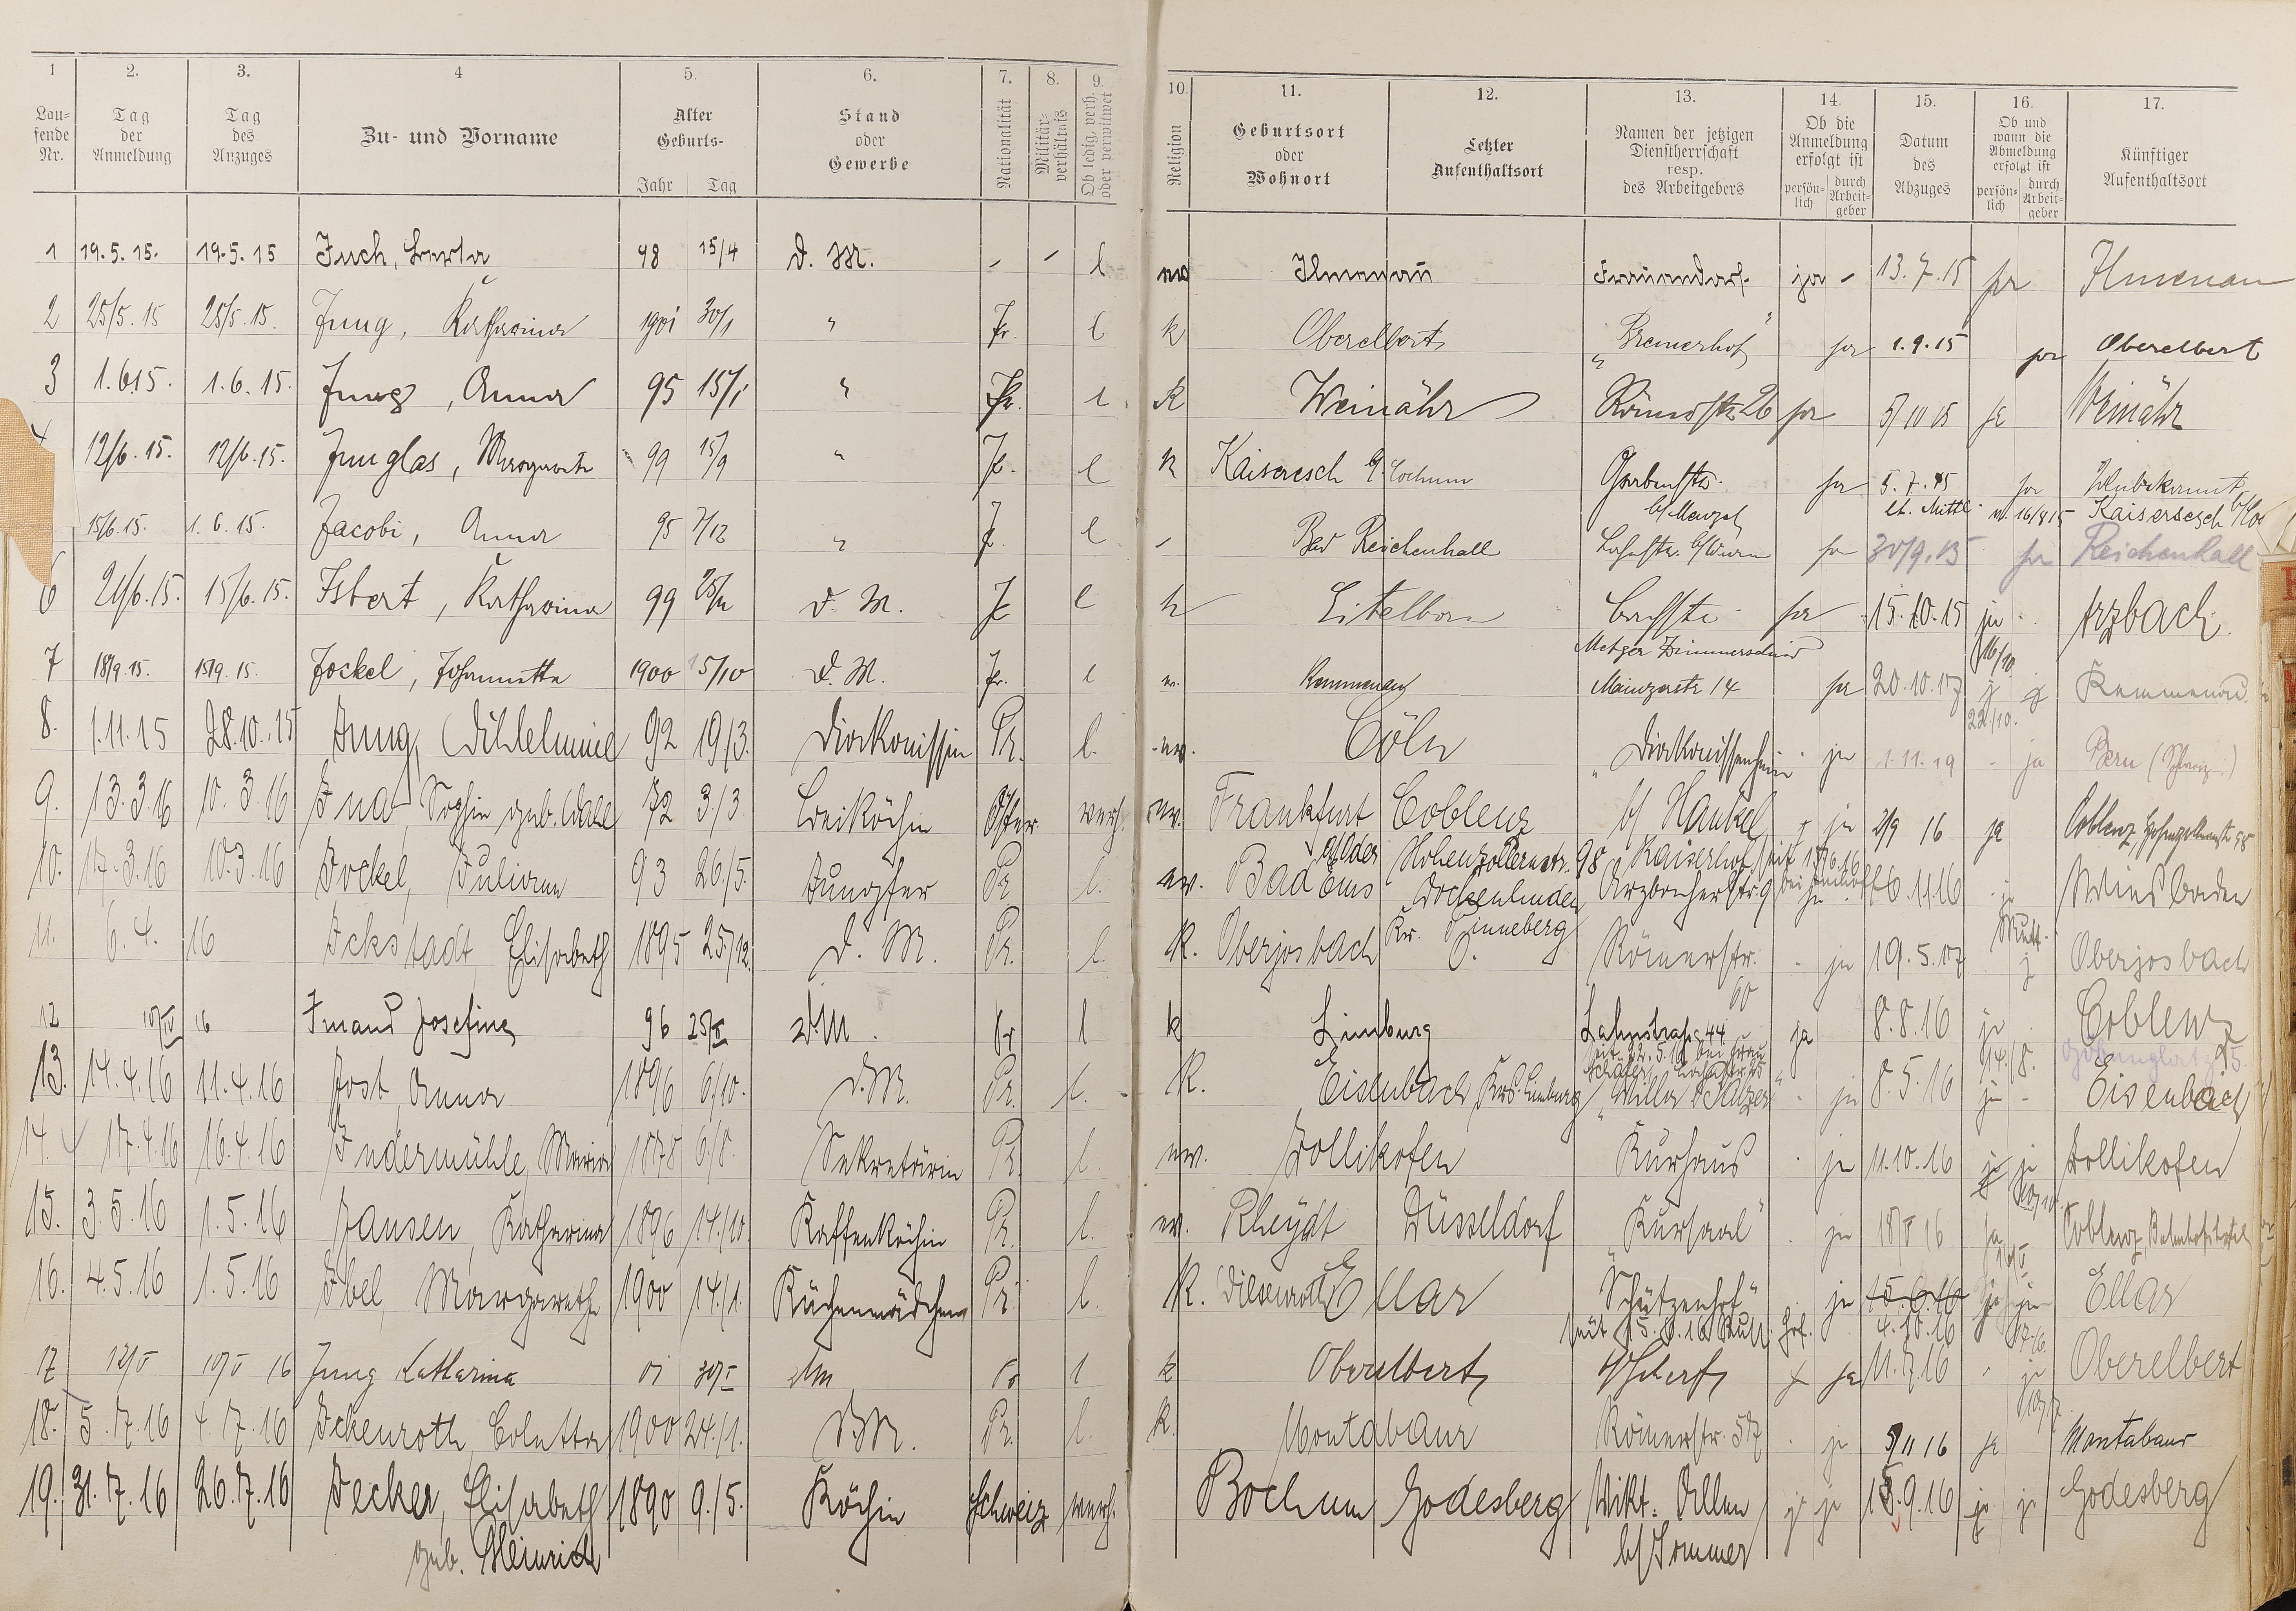 1 2. 3. 4 5. 6. 7. 8. 9. 10. 11. 12. 13. 14. 15. 16. 17.
Laufende Nr. Tag der Anmeldung Tag des Anzuges Zu- und Vorname Alter Geburts- Jahr Tag Stand oder Gewerbe Nationalität Militärverhältnis Ob ledig, verh. oder verwitwet Religion Geburtsort oder Wohnort Letzter Aufenthaltsort Namen der jetzigen Dienstherrschaft resp. des Arbeitgebers Ob die Anmeldung erfolgt ist persönlich durch Arbeitgeber Datum des Abzuges Ob und wann die Abmeldung erfolgt ist persönlich durch Arbeitgeber Künftiger Aufenthaltsort
1 19.5.15. 19.5.15 Juch, 98 15/4 d. M. - - l Ilmenau ja - 13.7.15 ja Ilmenau
2 25/5.15 25/5.15. Jung, Katharina 1901 30/1 " Pr. l k Oberelbert "Bremerhof" ja 1.9.15 ja Oberelbert
3 1.6.15. 1.6.15. Jung, Anna 95 15/1 " Pr. l k Weinähr Römerstr. 26 ja 5/10 15 ja Weinähr
12/6.15. 12/6.15. Junglas, Margarete 99 15/9 " Pr. l k Kaisersesch b/Cochem Grabenstr. b/Menzel ja 5.7.15 lt. Mittl. ja Unbekannt
n. 16/8 15 Kaisersesch
15/6.15. 1.6.15. Jacobi, Anna 95 7/12 " l - Bad Reichenhall ja 30/9.15 ja Reichenhall
6 21/6.15. 15/6.15. Isbert, Katharina 99 d. M. l k Eitelborn ja 15.10.15 ja Arzbach
Metzger Zimmerschied 16/10
7 18/9.15. 15/9.15. Jockel, Johannette 1900 15/10 d. M. Pr. l Kemmenau Mainzerstr 14 ja 20.10.17 Kemmenau
22/10.
8. 1.11.15 28.10.15 Jung, Wilhelmine 92 19/3. Diakonissin Pr. l. ev. Cöln "Diakonissenheim - ja 1.11.19 - ja Bern (Schweiz.)
9. 13.3.16 10.3.16 Sophie geb. 72 3/3 Österr. verh. ev. Frankfurt a/Oder Coblenz Hohenzollernstr. 98 b/ Hankel ja 2/9 16 ja Coblenz, Hohenzollernstr 98
10. 17.3.16 10.3.16 Jockel, Juliane 93 26/5. Jungfer Pr l. ev. Bad Ems Dockenhuden Kr. Pinneberg Arzbacherstr 9 6.11.16 Wiesbaden
11. 6.4.16 Ickstadt Elisabeth 1895 25/12. d. M. Pr. l. K. Oberjosbach Römerstr. 60 - ja 19.5.17 Oberjosbach
12 10/IV 16 Imand Josefine 96 d.M. Pr l k Limburg Lahnstraße 44 ja 8.8.16 ja Coblenz
14./8.
13. 14.4.16 11.4.16 Jost, Anna 1896 6/10. d.M. Pr. l. K. Eisenbach, Krs. Limburg - ja 8.5.16 ja - Eisenbach
14. 17.4.16 16.4.16 Indermühle, Maria 1878 6/8. Sekretärin Pr l. ev. Zollikofen Kurhaus - ja 11.10.16 ja Zollikofen
15. 3.5.16 1.5.16 Jansen, Katharina 1896 14/10 Kaffeeköchin Pr. l. ev. Rheydt Düsseldorf "Kursaal" - ja 18/V 16 ja Coblenz, Bahnhofshotel
16. 4.5.16 1.5.16 Ibel, Margarethe 1900 14/1. Küchenmädchen Pr. l. K. Wilsenroth Ellar "Schützenhof" ja 15.6.16 Ellar
seit 15.6.16 4.10.16 17/6.
17 12/V 10/V 16 Jung Katharina 01 30/I dm Pr l k Oberelbert ja 11.7.16 - ja Oberelbert
18. 5.7.16 4.7.16 Ickenroth, Coletta 1900 24/1. d.M. Pr. l. k. Montabaur Römerstr. 57 - ja 5/11 16 ja Montabaur
19. 31.7.16 26.7.16 Jecker, Elisabeth 1890 9/5. Köchin Schweiz verh. Bochum Godesberg Vikt. Allee ja 15.9.16 ja ja Godesberg
geb. Heinrich b/Sommer